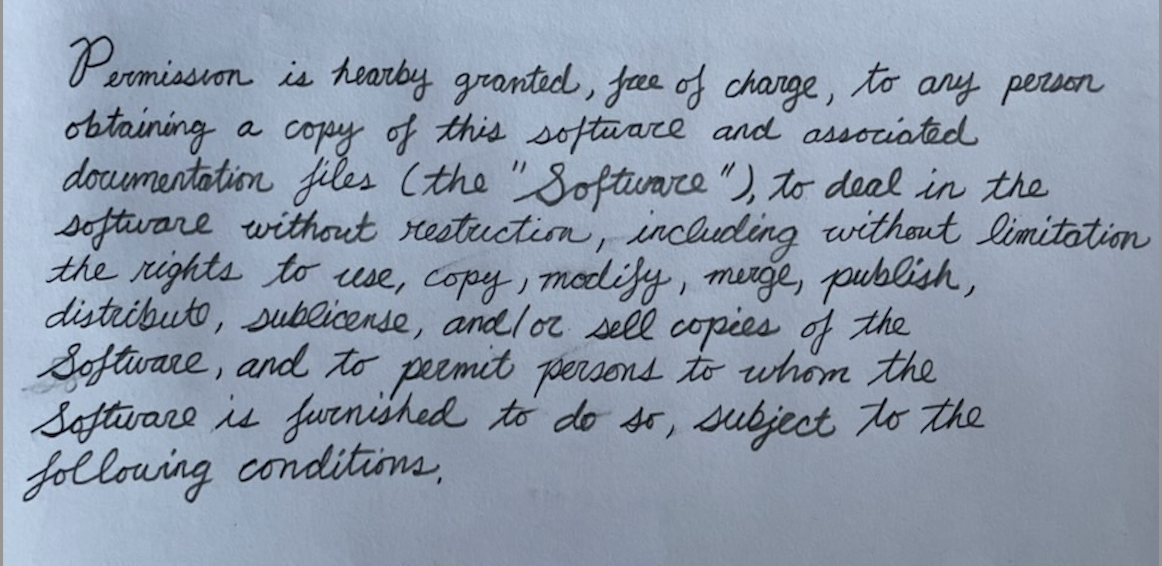 Permission is hearby granted, free of charge, to any person
obtaining a copy of this software and associated
documentation files (the "Software"), to deal in the
software without restriction, including without limitation
the rights to use, copy, modify, merge, publish,
distribute, sublicense, and/or sell copies of the
Software, and to permit persons to whom the
Software is furnished to do so, subject to the
following conditions.